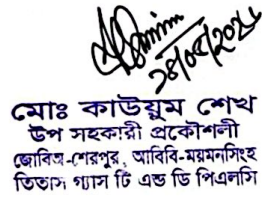 ২৪/০৫/২০২৫
মোঃ কাউয়ুম শেখ
উপ সহকারী প্রকৌশলী
জোবিঅ-শেরপুর, আবিবি-ময়মনসিংহ
তিতাস গ্যাস টি এন্ড ডি পিএলসি